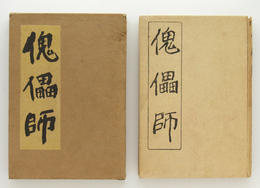 傀
儡
師
傀
儡
師